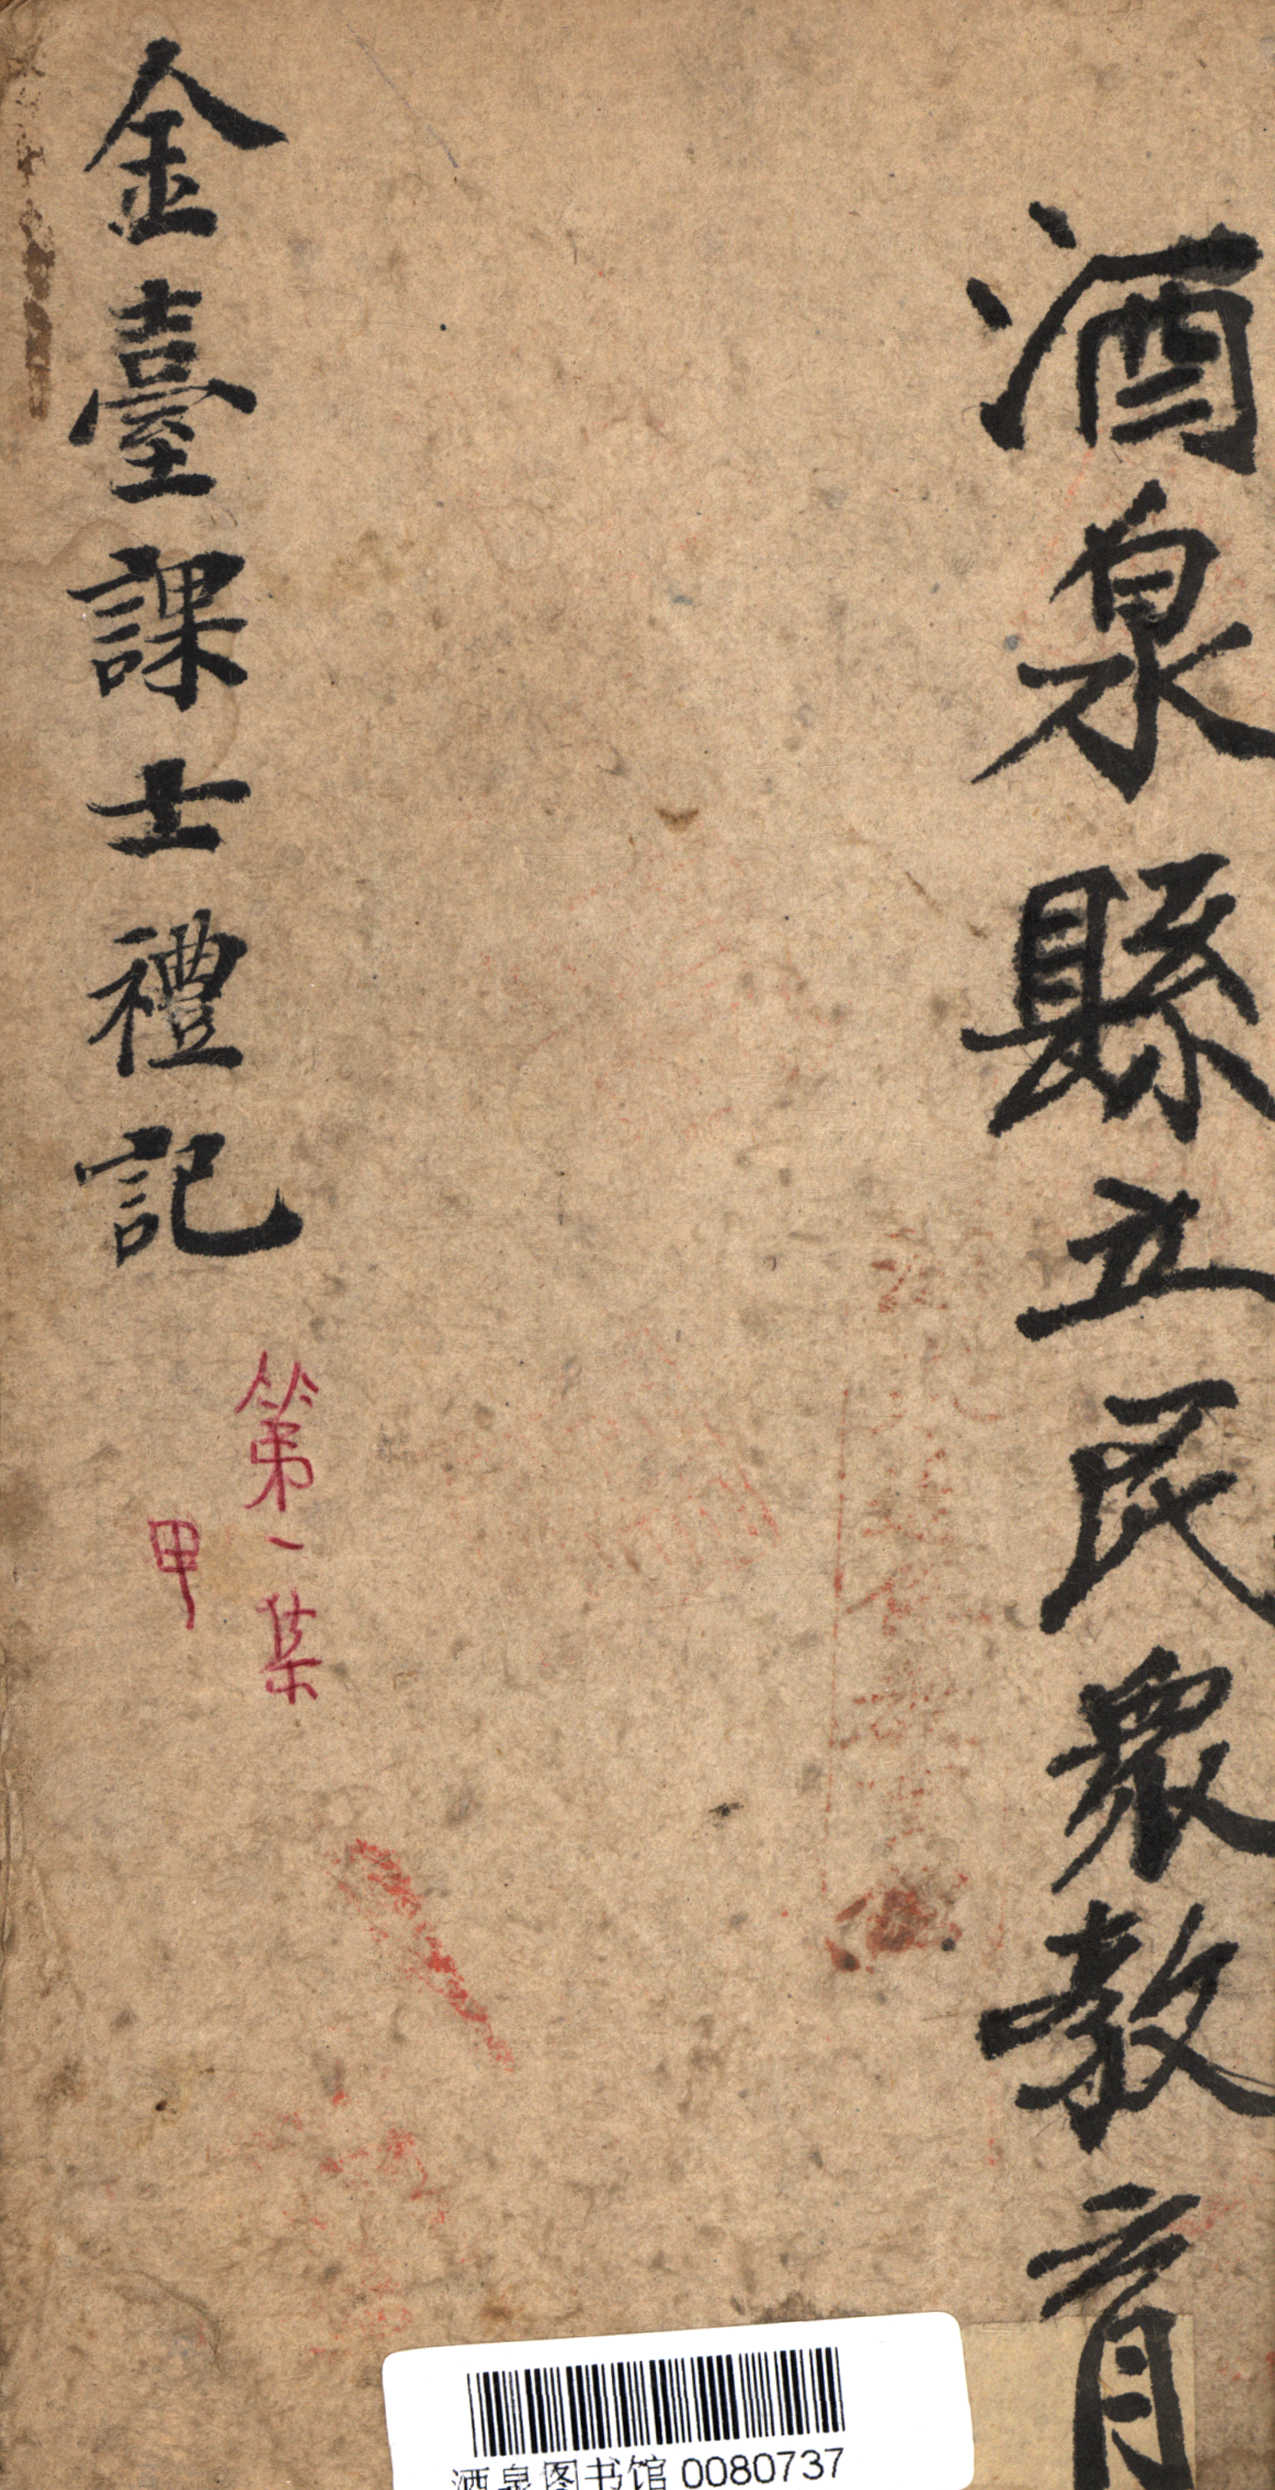 酒泉縣立民衆教育
金臺課士禮記
第一集
甲
酒泉图书馆 0080737